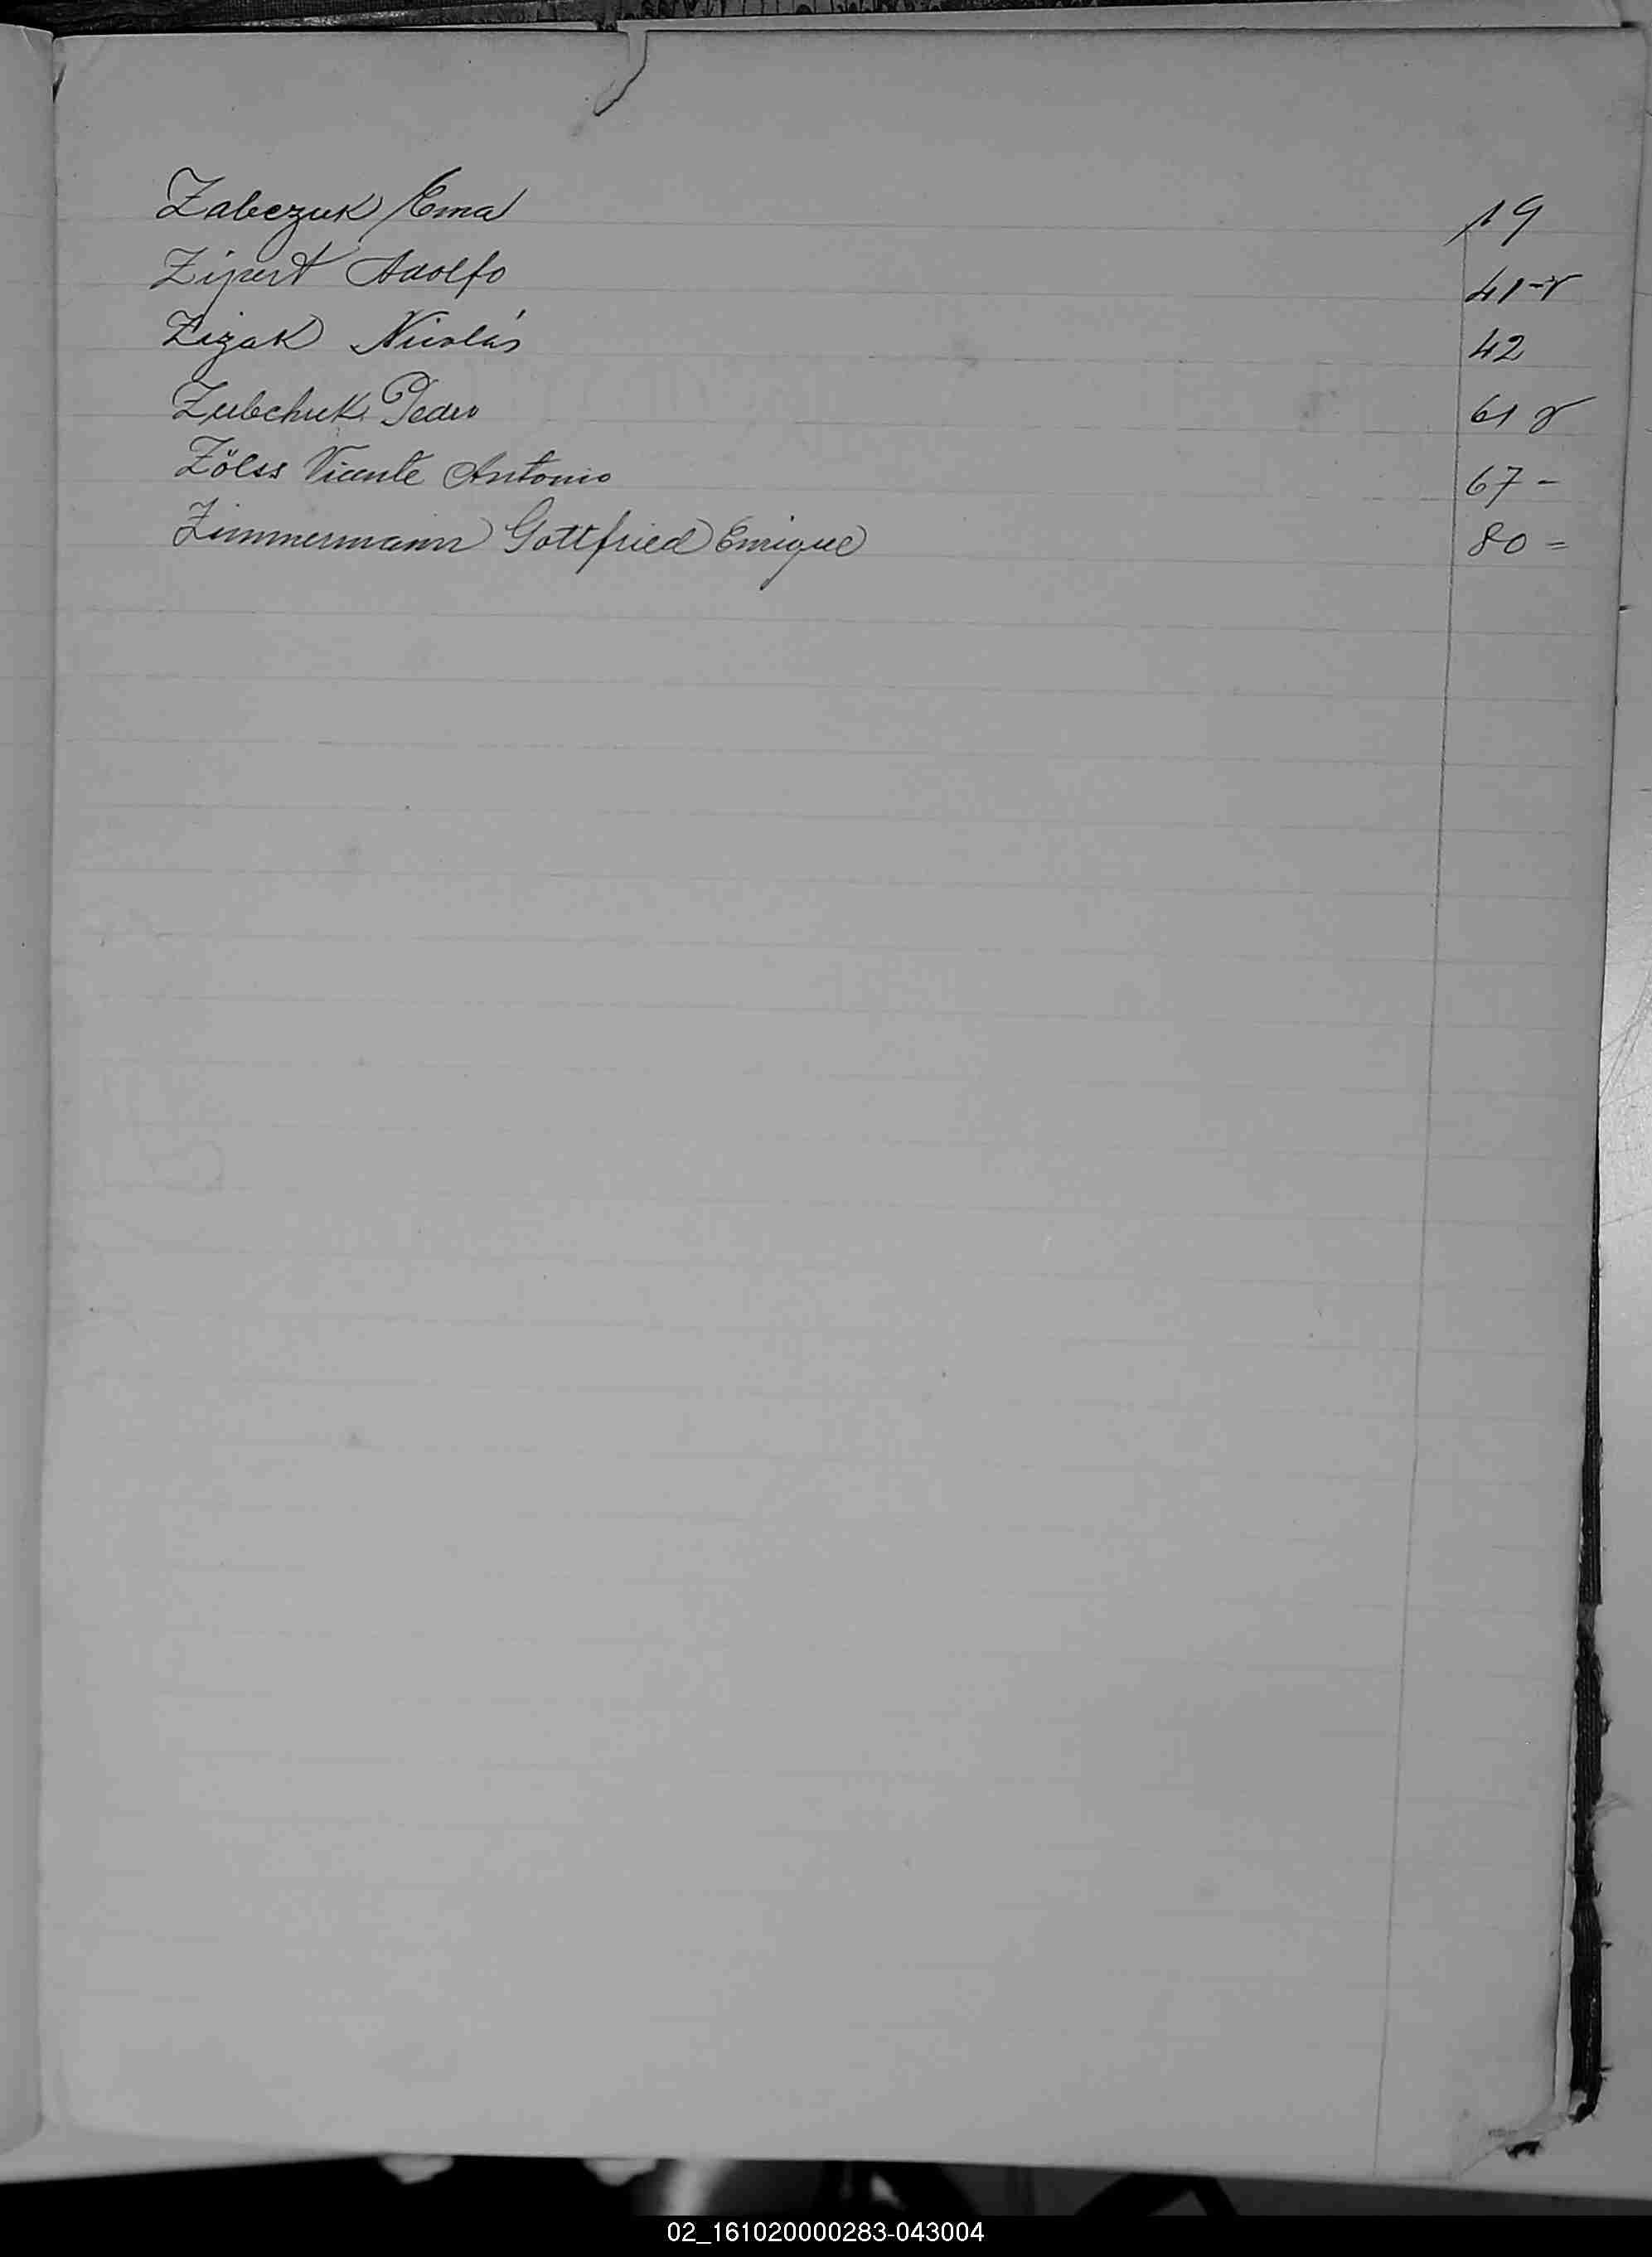 Zabczuk Ema 19
Zipert Adolfo 41-v
Zizak Nicolás 42
Zubchuk Pedro 61 v
Zölss Vicente Antonio 67 -
Zimmermann Gottfried Enrique 80 =
02_161020000283-043004